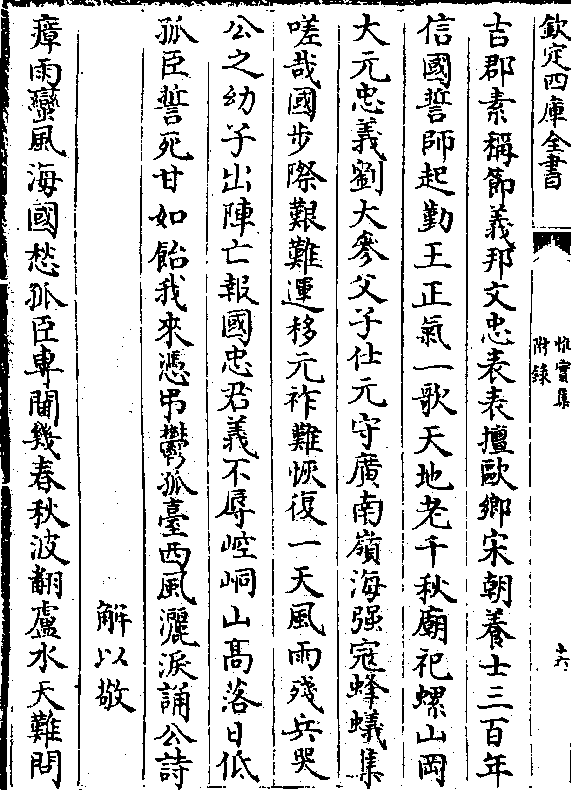 欽定四庫全書
惟實集
附錄
十六
吉郡素稱節義邦文忠表表擅歐鄉宋朝養士三百年
信國誓師起勤王正氣一歌天地老千秋廟祀螺山岡
大元忠義劉大參父子仕元守廣南嶺海强寇蜂蟻集
嗟哉國步際艱難運移元祚難恢復一天風雨殘兵哭
公之幼子出陣亡報國忠君義不辱崆峒山高落日低
孤臣誓死甘如飴我來憑弔鬱孤臺西風灑淚誦公詩
解以敬
瘴雨蠻風海國愁孤臣專閫幾春秋波翻盧水天難問